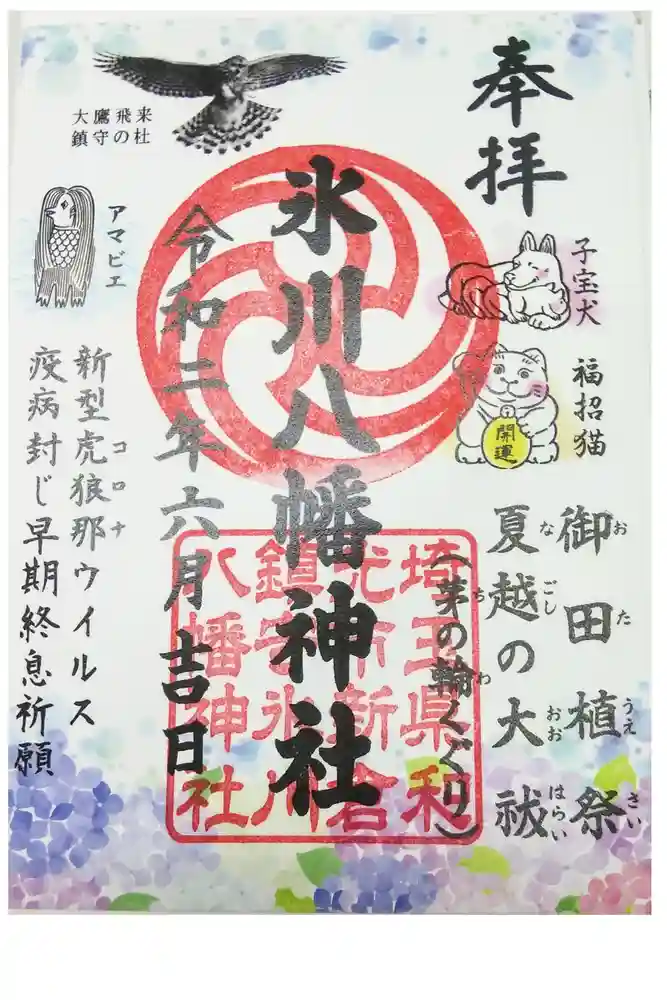 奉拝
子宝犬
福招猫
開運
御田植祭
おたうえさい
夏越の大祓
なごしおおはらい
(茅の輪くぐり)
ちわ
氷川八幡神社
令和二年六月吉日
埼玉県和
光市新倉
鎮守氷川
八幡神社
大鷹飛来
鎮守の杜
アマビエ
新型虎狼那ウイルス
コロナ
疫病封じ早期終息祈願